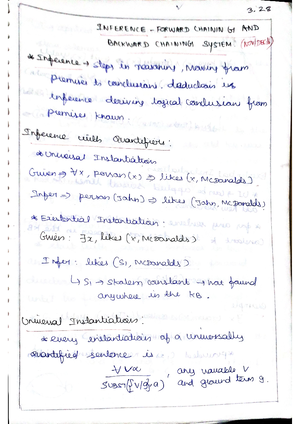 3.28
INFERENCE - FORWARD CHAINING AND
BACKWARD CHAINING SYSTEM
* Inference → steps in reasoning, moving from
Premises to conclusions. deduction is
inference deriving logical conclusions from
Premises known.
Inference with Quantifiers:
* Universal Instantiation
Given ⇒ ∀x, person(x) ⇒ likes (x, McDonalds)
Infer → person (John) ⇒ likes (John, McDonalds)
* Existential Instantiation:
Given: ∃x, likes (x, McDonalds)
Infer: likes (S1, McDonalds)
↳ S1 → Skolem constant → not found
anywhere in the KB.
Universal Instantiation:
* every instantiation of a universally
quantified sentence is
∀ v α , any variable v
SUBST({v/g}, α) and ground term g.